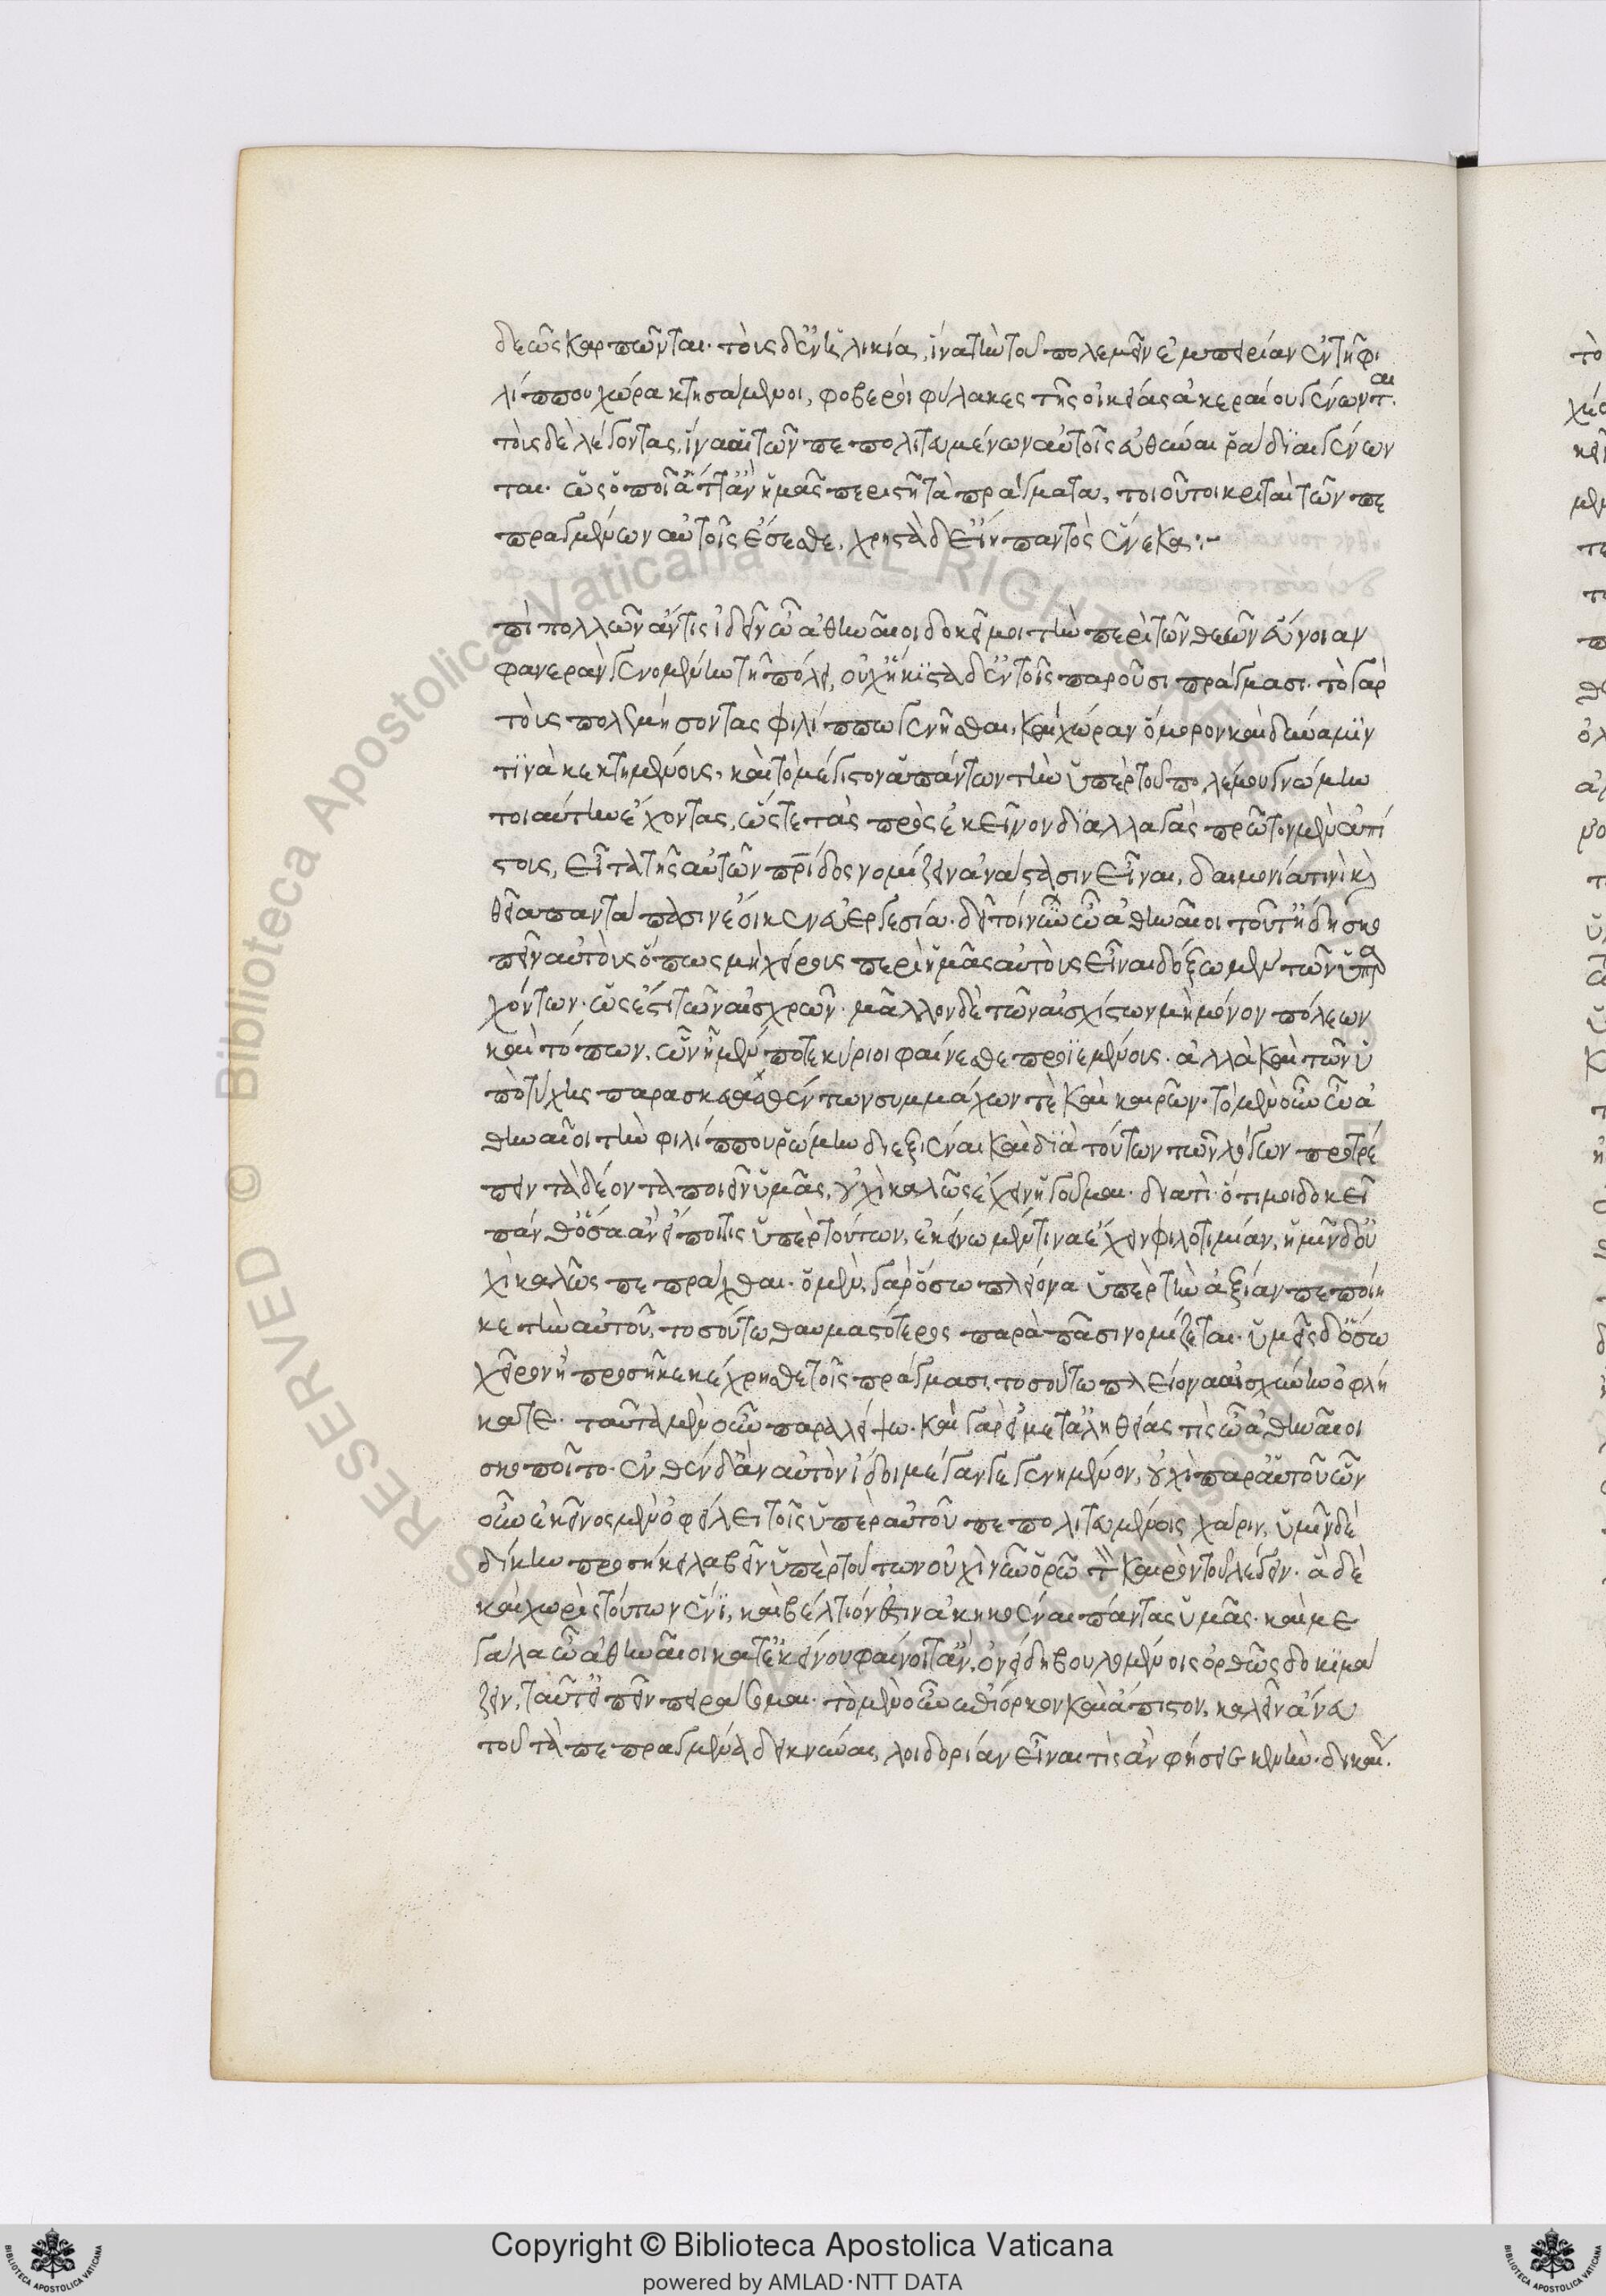 δεῶς καρπῶνται· τοὺς δ' ἐν ἡλικία, ἵνα τὴν τοῦ πολεμεῖν ἐμπειρίαν ἐν τῆ φι
λίππου χώρα κτησάμενοι, φοβεροὶ φύλακες τῆς οἰκείας ἀκεραίου γένωνται.
τοὺς δὲ λέγοντας, ἵνα αἱ τῶν πεπολιτευμένων αὐτοῖς εὐθῦναι ῥάδϊαι γένων
ται· ὡς ὁποῖ' ἄττ' ἂν ἡμᾶς περιστῆ τὰ πράγματα, τοιοῦτοι κριταὶ τῶν πε
πραγμένων αὐτοῖς ἔσεσθε, χρηστὰ δ' εἴη παντὸς ἕνεκα:~
πὶ πολλῶν ἄν τις ἰδεῖν ὦ ἀθηναῖοι δοκεῖ μοι τὴν περὶ τῶν θεῶν εὔνοιαν
φανερὰν γενομένην τῆ πόλει, οὐχ ἥκϊστα δ' ἐν τοῖς παροῦσι πράγμασι· τὸ γὰρ
τοὺς πολεμήσοντας φιλίππω γενῆσθαι, καὶ χώραν ὅμορον καὶ δύναμϊν
τϊνὰ κεκτημένους, καὶ τὸ μέγιστον ἁπάντων τὴν ὑπὲρ τοῦ πολέμου γνώμην
τοιαύτην ἔχοντας, ὥστε τὰς πρὸς ἐκεῖνον δϊαλλαγὰς πρῶτον μὲν ἀπί
στους, εἶτα τῆς αὐτῶν πρίδος νομίζειν ἀνάστασιν εἶναι, δαιμονία τινὶ κὶ
θεία παντάπασιν ἔοικεν εὐεργεσία· δεῖ τοίνυν ὦ ἀθηναῖοι τοῦτ' ἤδη σκο
πεῖν αὐτοὺς ὅπως μὴ χείρους περὶ ἡμᾶς αὐτοὺς εἶναι δόξωμεν τῶν ὑπαρ
χόντων· ὡς ἔστι τῶν αἰσχρῶν· μᾶλλον δὲ τῶν αἰσχίστων μὴ μόνον πόλεων
καὶ τόπων, ὧν ἦμέν ποτε κύριοι φαίνεσθε προϊεμένους· ἀλλὰ καὶ τῶν ὑ
πὸ τύχης παρασκευασθέντων συμμάχων τὲ καὶ καιρῶν· τὸ μὲν οὖν ὦ ἀ
θηναῖοι τὴν φιλίππου ῥώμην διεξιέναι καὶ δϊὰ τούτων τῶν λόγων προτρέ
πειν τὰ δέοντα ποιεῖν ὑμᾶς, οὐχὶ καλῶς ἔχειν ἡγοῦμαι· διατί· ὅτι μοι δοκεῖ
πάνθ' ὅσα ἂν εἴποι τις ὑπὲρ τούτων, ἐκείνω μέν τινα ἔχειν φιλοτιμίαν, ἡμῖν δ' οὐ
χὶ καλῶς πεπράχθαι· ὁ μὲν, γὰρ ὅσω πλείονα ὑπὲρ τὴν ἀξίαν πεποίη
κε τὴν αὐτοῦ, τοσούτω θαυμαστότερος παρὰ πᾶσι νομίζεται· ὑμεῖς δ' ὅσω
χεῖρον ἢ προσῆκε κέχρησθε τοῖς πράγμασι, τοσούτω πλείονα αἰσχύνην ὠφλή
κατε· ταῦτα μὲν οὖν παραλείψω· καὶ γὰρ εἰ μετ' ἀληθείας τὶς ὦ ἀθηναῖοι
σκοποῖτο· ἐνθένδ' ἂν αὐτὸν ἴδοι μέγαν γεγενημένον, οὐχὶ παρ' αὑτοῦ ὧν
οὖν ἐκεῖνος μὲν ὀφείλει τοῖς ὑπὲρ αὐτοῦ πεπολιτευμένοις χάριν, ὑμῖν δὲ
δίκην προσήκει λαβεῖν ὑπὲρ τούτων οὐχὶ νῦν ὁρῶ τὸν καιρὸν τοῦ λέγειν· ἃ δὲ
καὶ χωρὶς τούτων ἔνϊ, καὶ βέλτιόν ἐστιν ἀκηκοέναι πάντας ὑμᾶς· καὶ με
γάλα ὦ ἀθηναῖοι κατ' ἐκείνου φαίνοιτ' ἂν, ὀνείδη βουλομένοις ὀρθῶς δοκϊμά
ζειν, ταῦτ' εἰπεῖν πειράσομαι· τὸ μὲν οὖν ἐπίορκον καὶ ἄπιστον, καλεῖν ἄνευ
τοῦ τὰ πεπραγμένα δεικνύναι, λοιδορίαν εἶναι τὶς ἂν φήσειε κενὴν· δικαί.